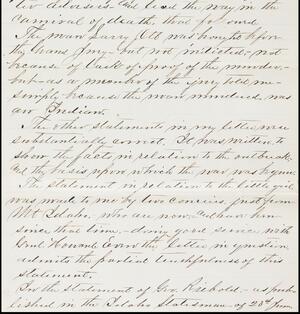 and lead the way in the
carnival of death, that followed
The man Larry Ott was brought before
the Grand Jury - but not indicted - not
because of lack of proof of the murder -
but - as a member of the jury told me -
simply because the man murdered was
an Indian.
The other statements in my letter are
substantially correct. It was written to
show the facts in relation to the outbreak
and the basis upon which the war was begun.
The statement in relation to the little girl
was made to me by two couriers just from
Mt Idaho, who are now and have been
since that time - doing good service with
Genl Howard the letter in question
admits the partial truthfulness of this
statement.
In the statement of Geo - as pub-
lished in the Idaho Statesman - of 23d June